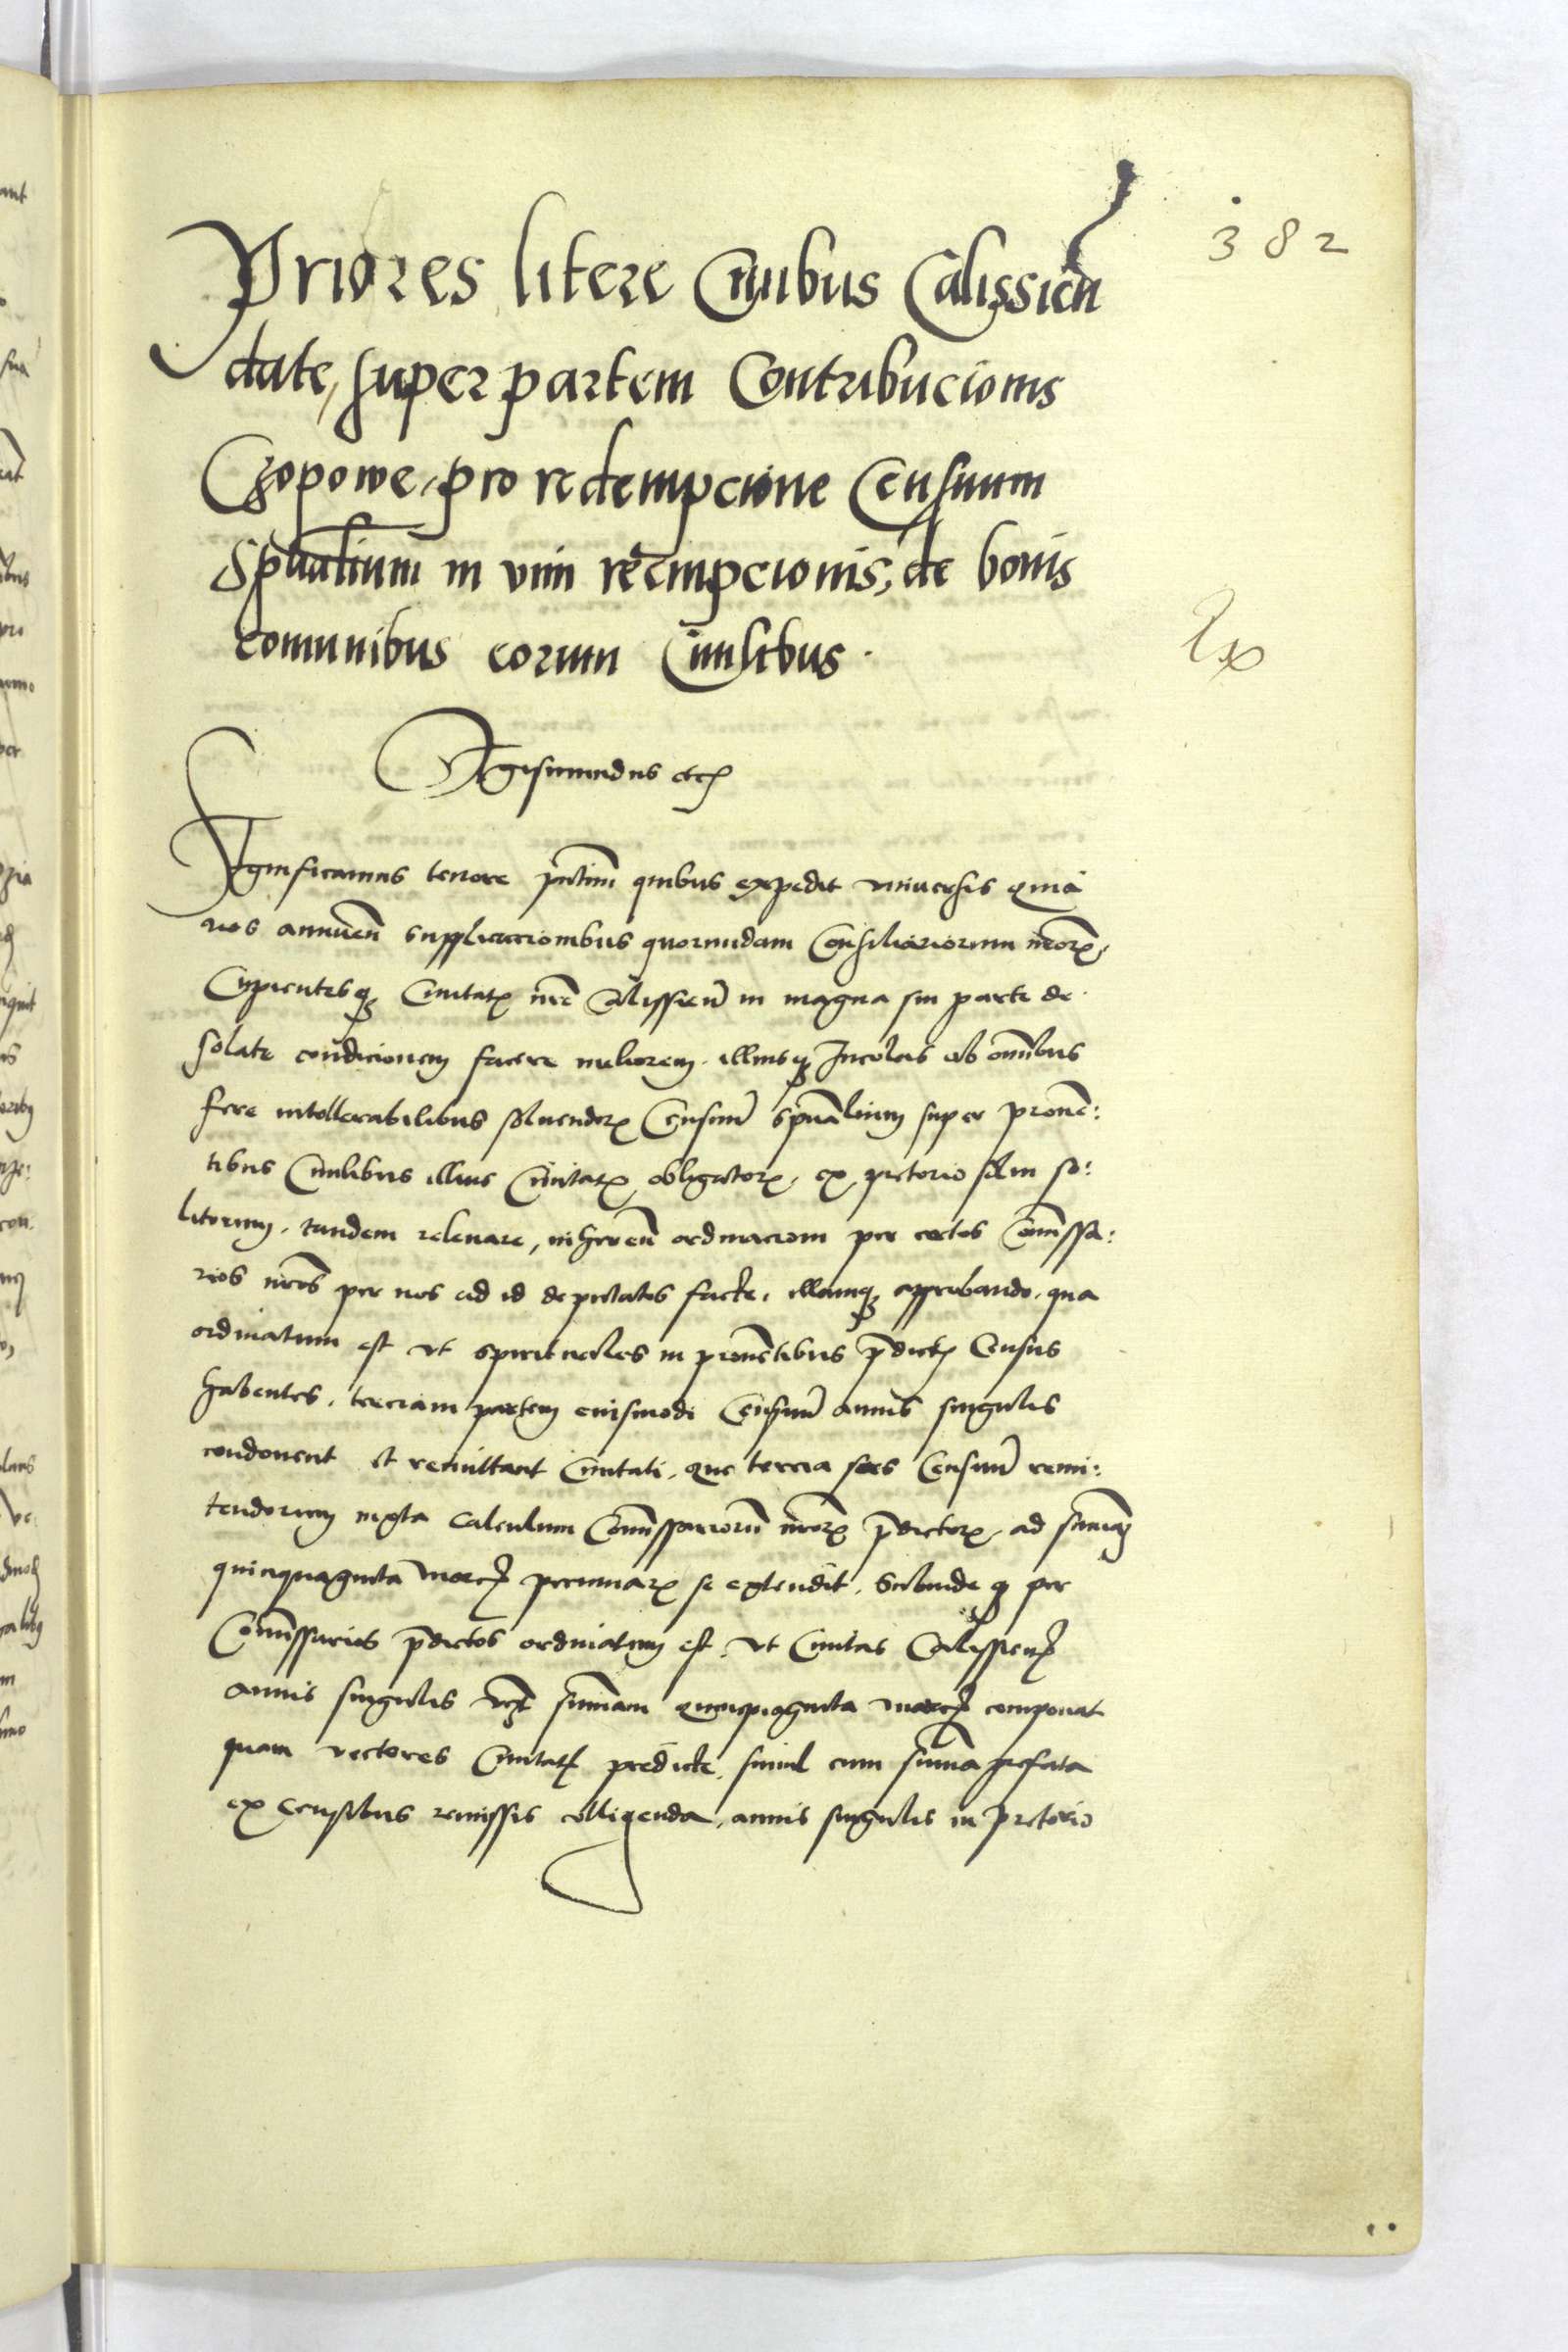 382
Priores litere Civibus Calissien
date, super partem Contribucionis
Czopowe, pro redempcione Censuum
Spualium in vim reempcionis, de bonis
comunibus eorum Civilibus.
Ex
Sigismundus etc
Significamus tenore pntium quibus expedit universis quia
nos annuen supplicacionibus quorundam Consiliariorum nrorum,
Cupientesque Civitatis nre Calissien in magna sui parte de
solate condicionem facere meliorem, illiusque Incolas ab omnibus
fere intollerabilibus solvendorum Censuum spualium super proven:
tibus Civilibus illius Civitatis obligatorum, ex pretorio solvi so:
litorum, tandem relevare, inheren ordinacioni per certos Comissa:
rios nros per nos ad id deputatos facte, illamque approbando, qua
ordinatum est ut spirituales in proventibus pdictis Census
habentes, terciam partem eiusmodi Censuum annis singulis
condonent et remittant Civitati, que tercia pars Censuum remi:
tendorum iuxta calculum Comissariorum nrorum pdictorum, ad sumam
quinquaginta marcas pecuniarum se extendit, Subinde que per
Comissarios pdictos ordinatum est, ut Civitas Calissien
annis singulis sumam quinquaginta marcas componat
quam rectores Civitatis predicte, simul cum suma prefata
ex Censibus remissis colligenda, annis singulis in Pretorio